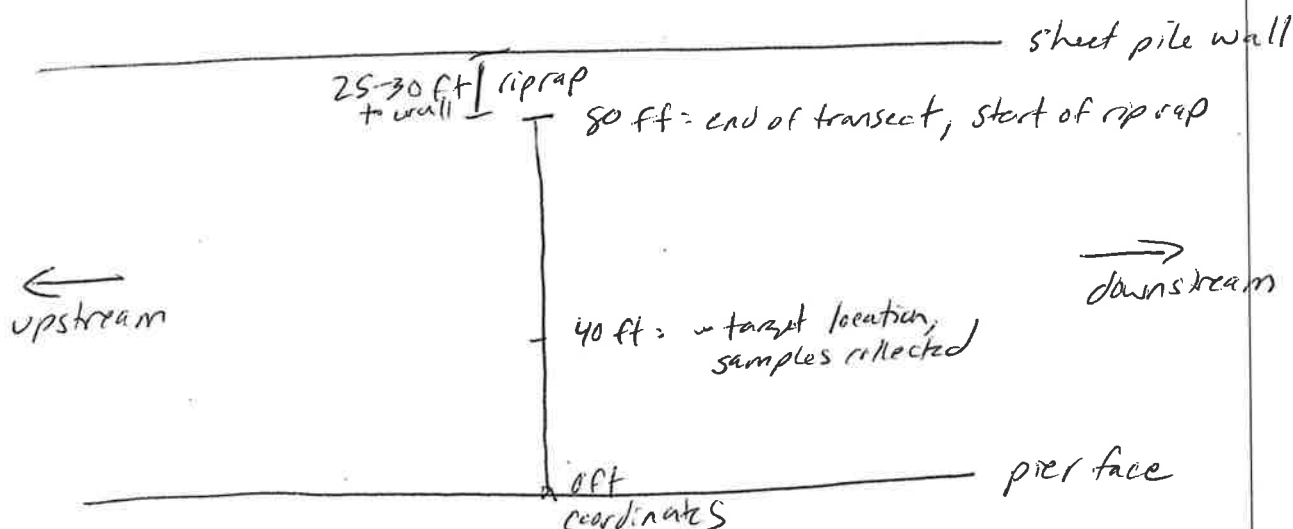 sheet pile wall
25-30 ft riprap
to wall
80 ft = end of transect, start of riprap
upstream
downstream
40 ft = ~ target location,
samples collected
0 ft
coordinates
pier face